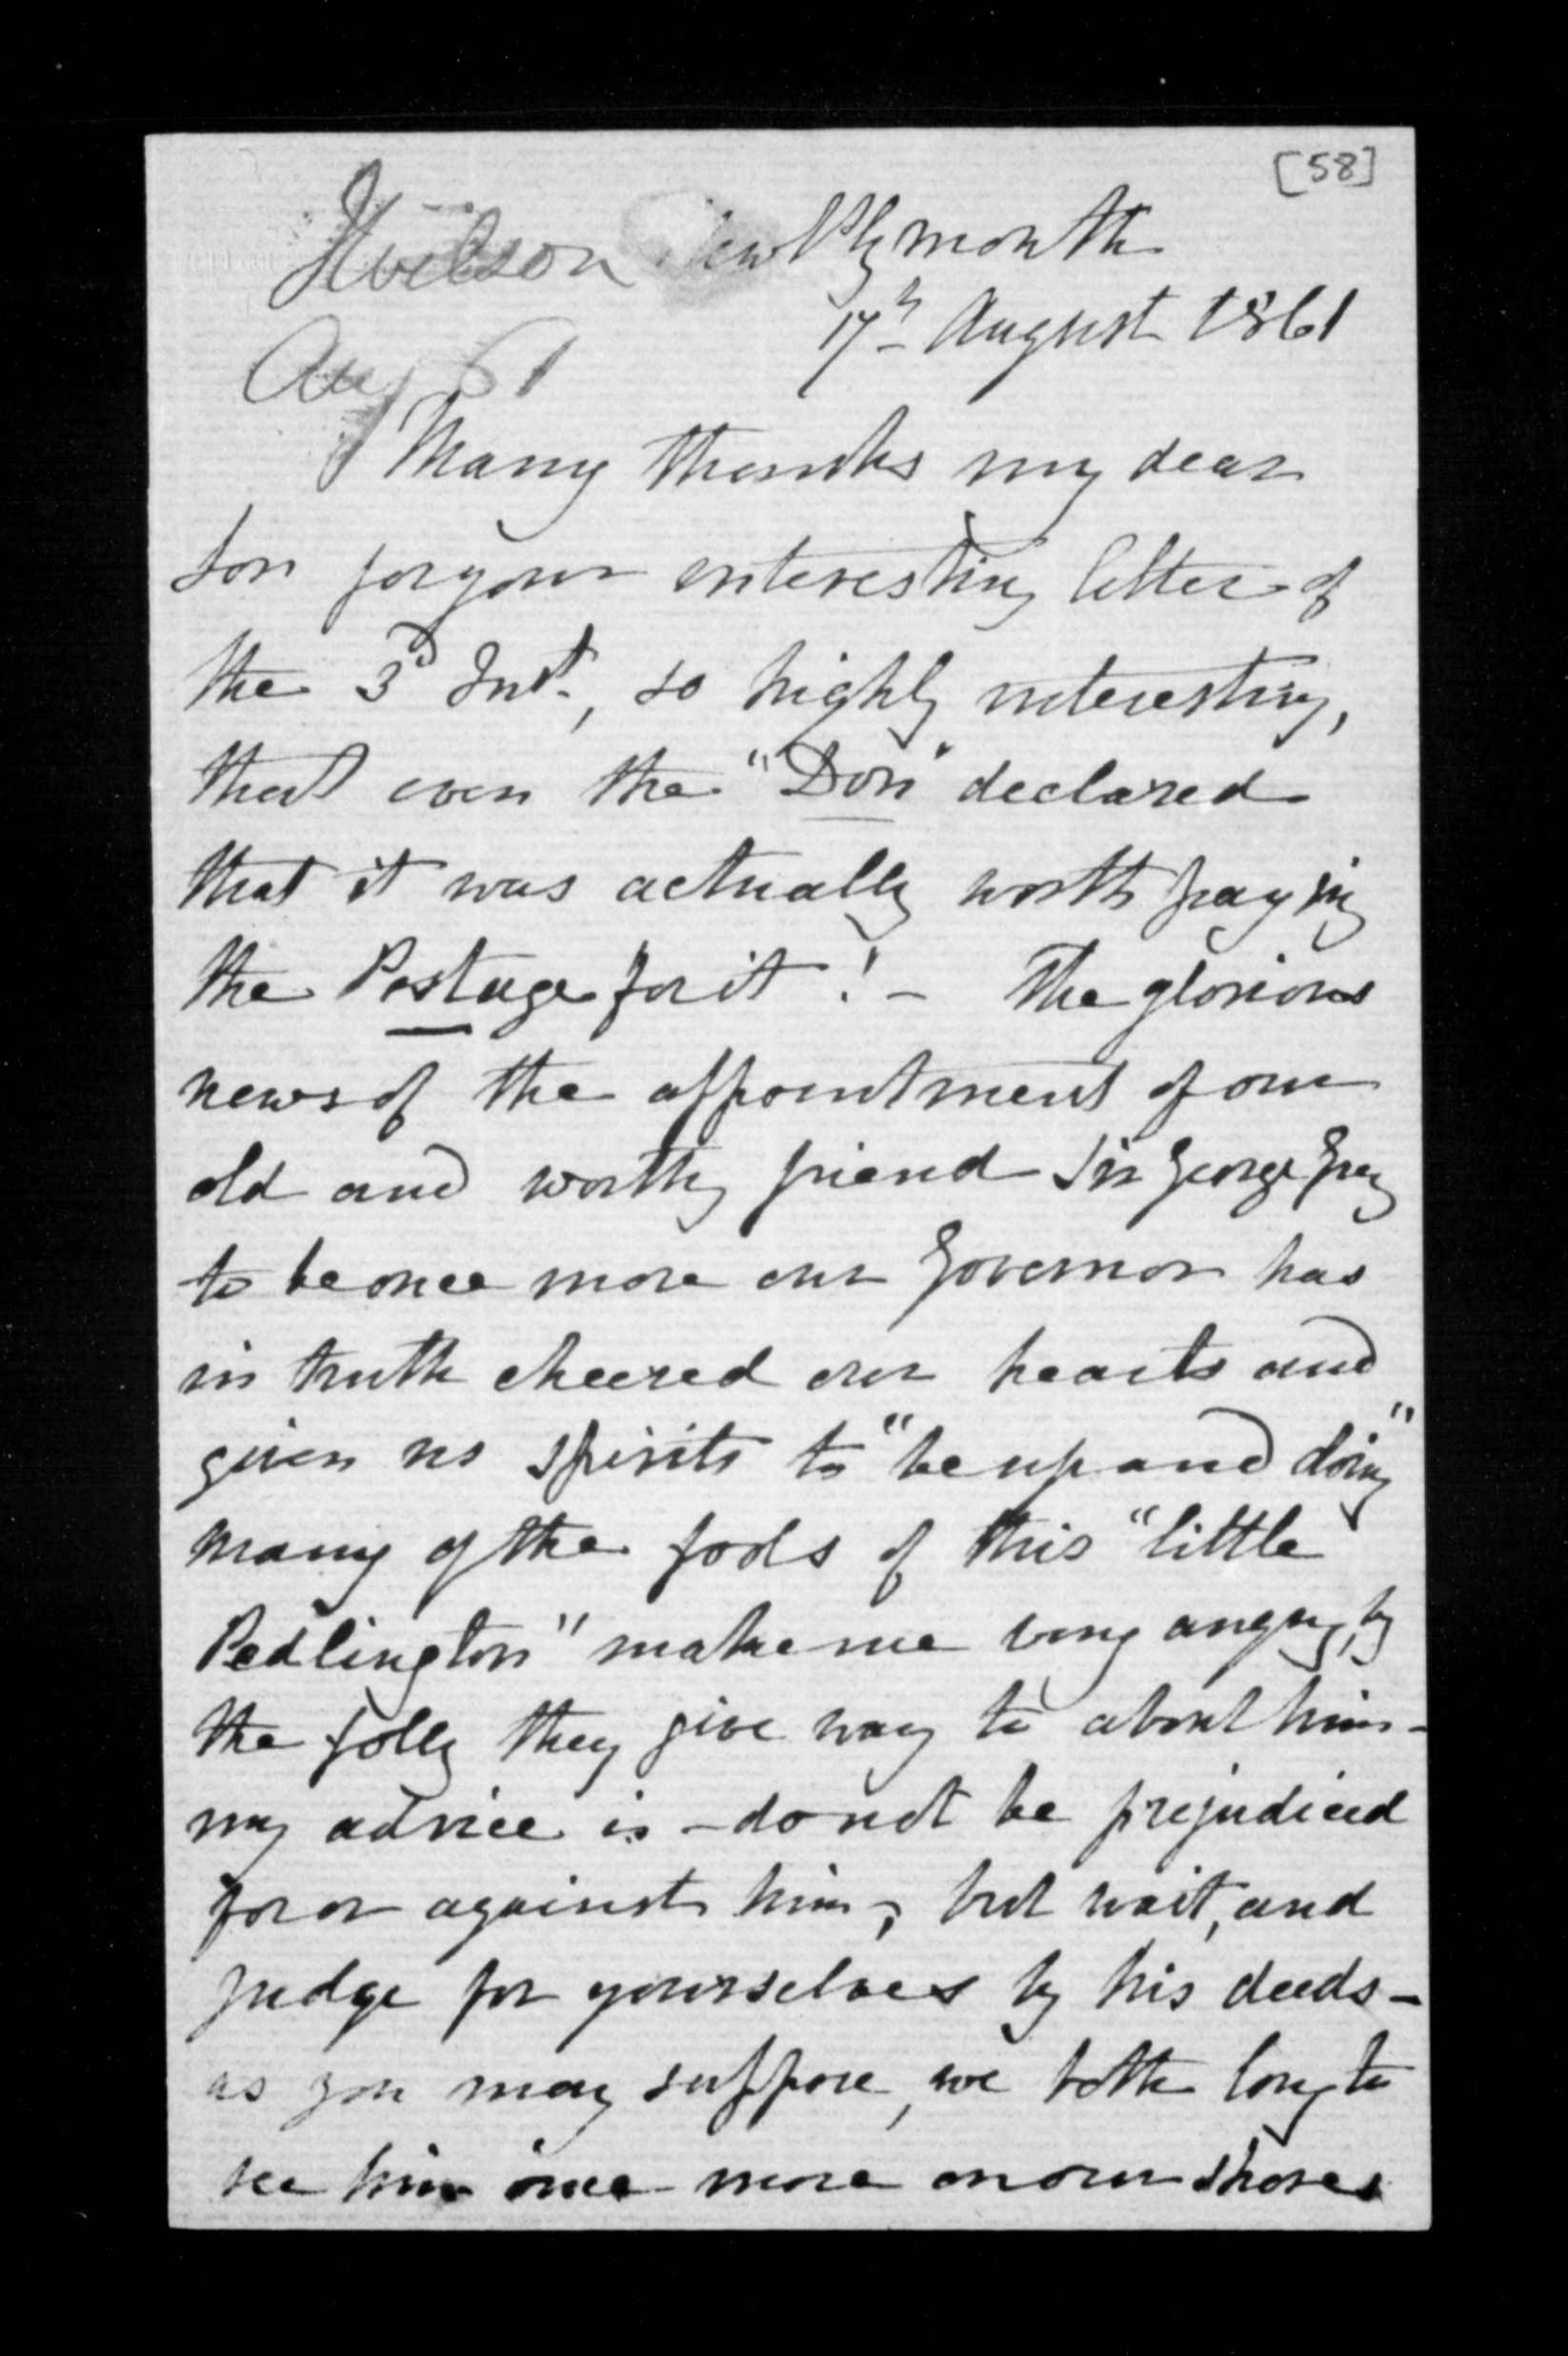 [58]
JWilson New Plymouth
17th August 1861
Aug 61
Many thanks my dear
Son for your interesting letter of
the 3d Inst., so highly interesting,
that even the "Don" declared
that it was actually worth paying
the Postage for it ! - The glorious
news of the appointment of our
old and worthy friend Sir George Grey
to be once more our Governor has
in truth cheered our hearts and
given us spirits to "be up and doing"
many of the fools of this "little
Pedlington" make me very angry, by
the folly they give way to about him -
my advice is - do not be prejudiced
for or against him, but wait, and
judge for yourselves by his deeds -
as you may suppose, we both long to
see him once more on our shores